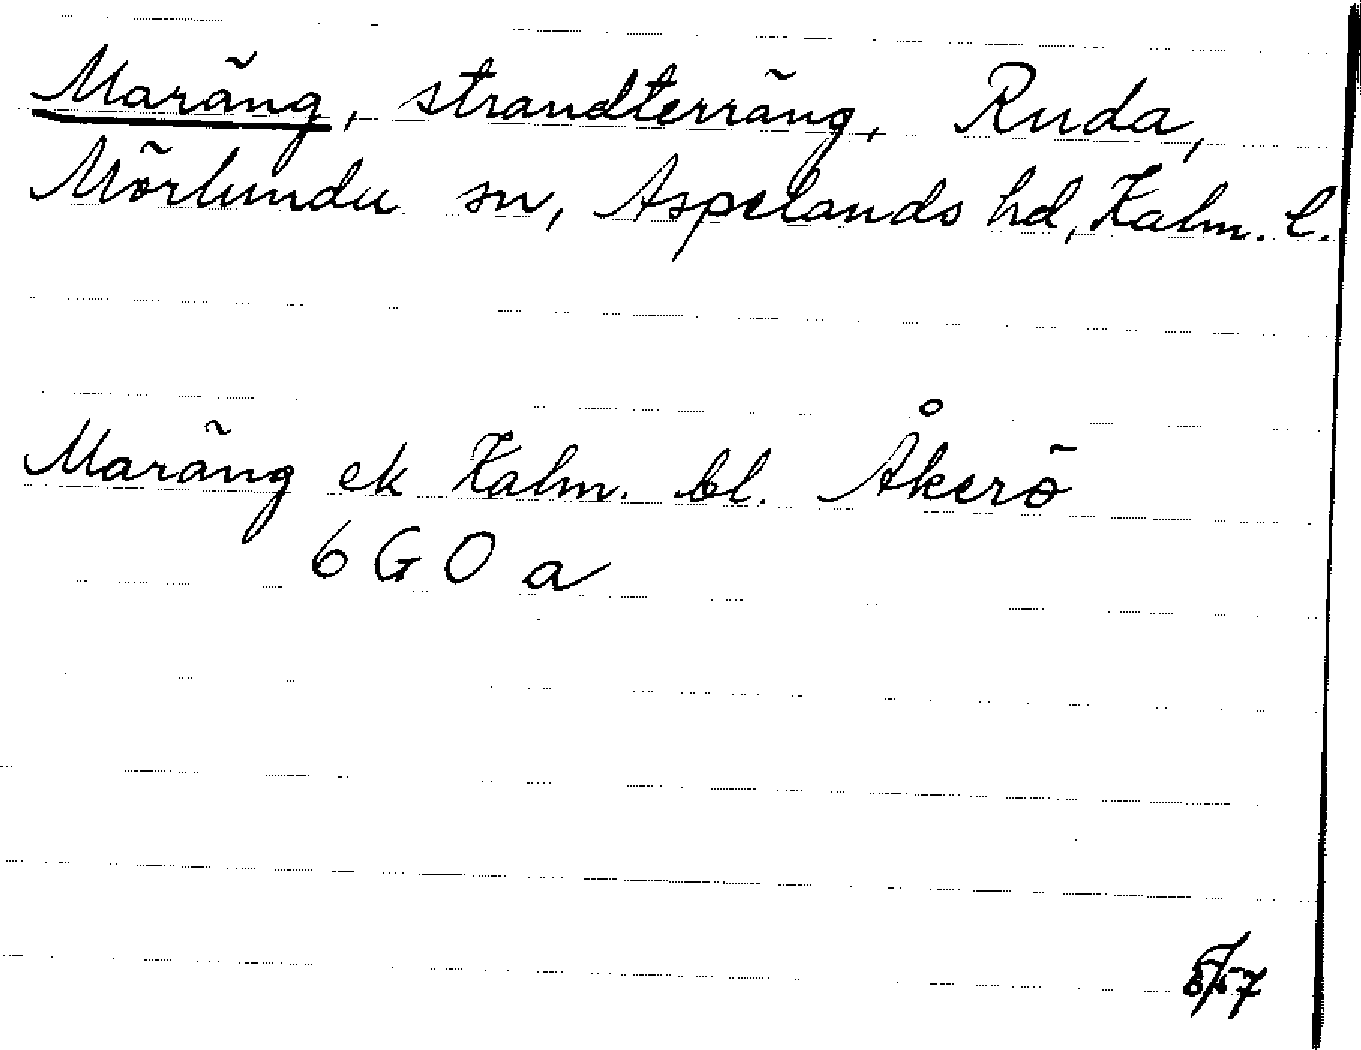 Maräng, strandterräng, Ruda,
Mörlunda sn, Aspelands hd, Kalm. l.
Maräng ek Kalm. bl. Åkerö
6 G 0 a